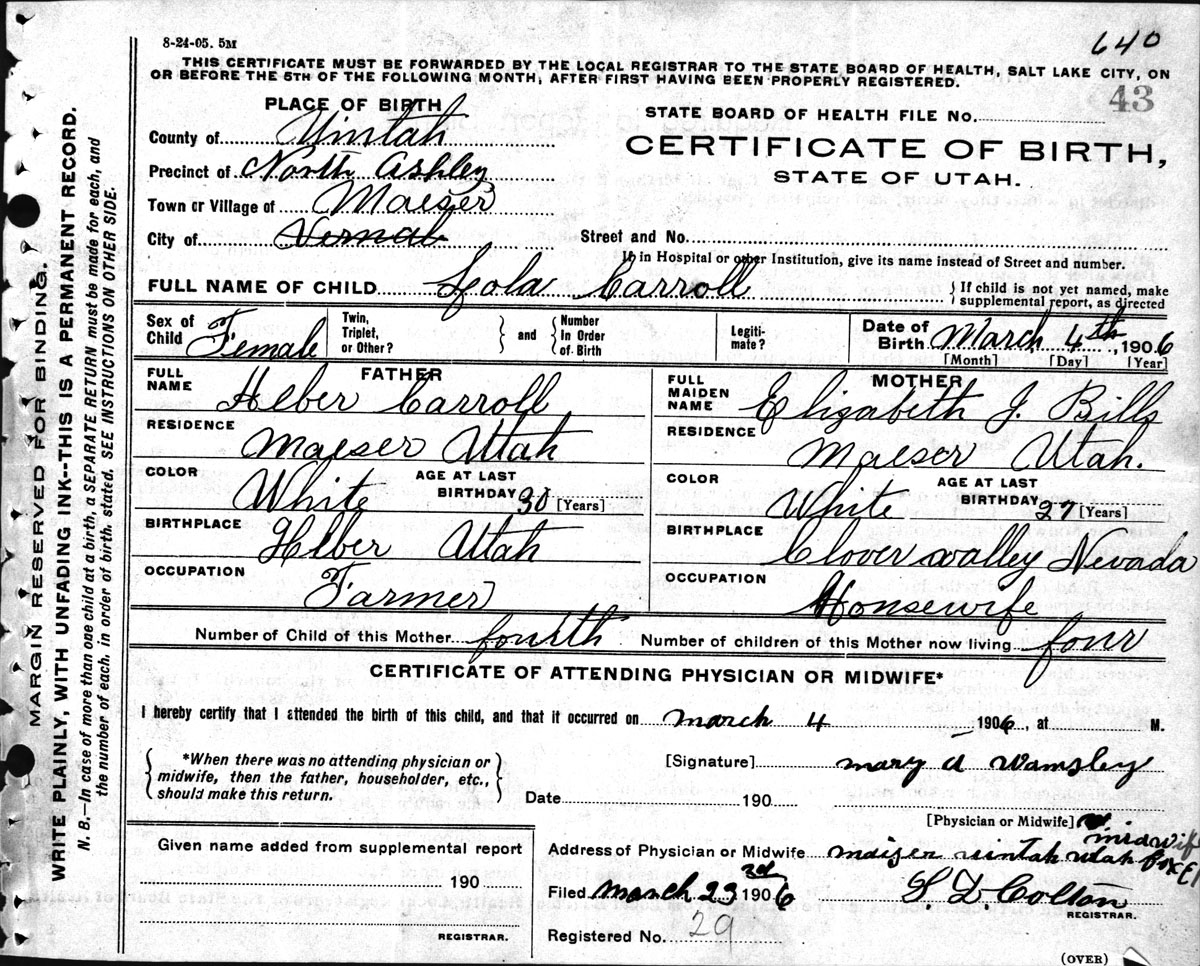 8-24-05. 5M
640
THIS CERTIFICATE MUST BE FORWARDED BY THE LOCAL REGISTRAR TO THE STATE BOARD OF HEALTH, SALT LAKE CITY, ON
OR BEFORE THE 5TH OF THE FOLLOWING MONTH, AFTER FIRST HAVING BEEN PROPERLY REGISTERED.
43
PLACE OF BIRTH
STATE BOARD OF HEALTH FILE No.
County of Uintah
CERTIFICATE OF BIRTH,
Precinct of North Ashley
STATE OF UTAH.
Town or Village of Maeser
City of Vernal
Street and No.
If in Hospital or other Institution, give its name instead of Street and number.
FULL NAME OF CHILD Lola Carroll
If child is not yet named, make
supplemental report, as directed
Sex of Child Female
Twin, Triplet, or Other?
and
Number In Order of Birth
Legiti-mate?
Date of Birth March 4th, 1906
[Month] [Day] [Year]
FATHER
FULL NAME Heber Carroll
RESIDENCE
Maeser Utah
COLOR White
AGE AT LAST BIRTHDAY 30 [Years]
BIRTHPLACE
Heber Utah
OCCUPATION
Farmer
MOTHER
FULL MAIDEN NAME Elizabeth J. Bills
RESIDENCE
Maeser Utah.
COLOR White
AGE AT LAST BIRTHDAY 27 [Years]
BIRTHPLACE
Clover valley Nevada
OCCUPATION
Housewife
Number of Child of this Mother fourth Number of children of this Mother now living four
CERTIFICATE OF ATTENDING PHYSICIAN OR MIDWIFE*
I hereby certify that I attended the birth of this child, and that it occurred on march 4 1906, at M.
*When there was no attending physician or
midwife, then the father, householder, etc.,
should make this return.
[Signature] mary A Wamsley
Date 190
[Physician or Midwife]
midwife
Given name added from supplemental report
190
REGISTRAR.
Address of Physician or Midwife maiser uintah utah Box
Filed march 23rd 1906 S. D. Colton
REGISTRAR.
Registered No. 29
(OVER)
MARGIN RESERVED FOR BINDING.
WRITE PLAINLY, WITH UNFADING INK--THIS IS A PERMANENT RECORD.
N. B.—In case of more than one child at a birth, a SEPARATE RETURN must be made for each, and
the number of each, in order of birth, stated. SEE INSTRUCTIONS ON OTHER SIDE.